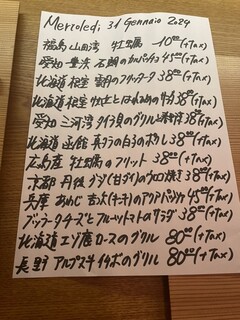 Mercoledì 31 Gennaio 2024
福島 山田湾 牡蠣 10⁰⁰(+Tax)
愛知 豊浜 石鯛のカルパッチョ 45⁰⁰(+Tax)
北海道 根室 38⁰⁰(+Tax)
北海道 根室 牡丹とはれひめの 38⁰⁰(+Tax)
愛知 三河湾 タイラ貝のグリル 38⁰⁰(+Tax)
北海道 函館 真ダラの白子のポワレ 38⁰⁰(+Tax)
広島産 牡蠣のフリット 38⁰⁰(+Tax)
京都 丹後 グジ(甘ダイ)のウロコ焼き 38⁰⁰(+Tax)
兵庫 のアクアパッツァ 45⁰⁰(+Tax)
ブッラータチーズとフルーツトマトのサラダ 38⁰⁰(+Tax)
北海道 エゾ鹿ロースのグリル 80⁰⁰(+Tax)
長野 アルプス牛イチボのグリル 80⁰⁰(+Tax)